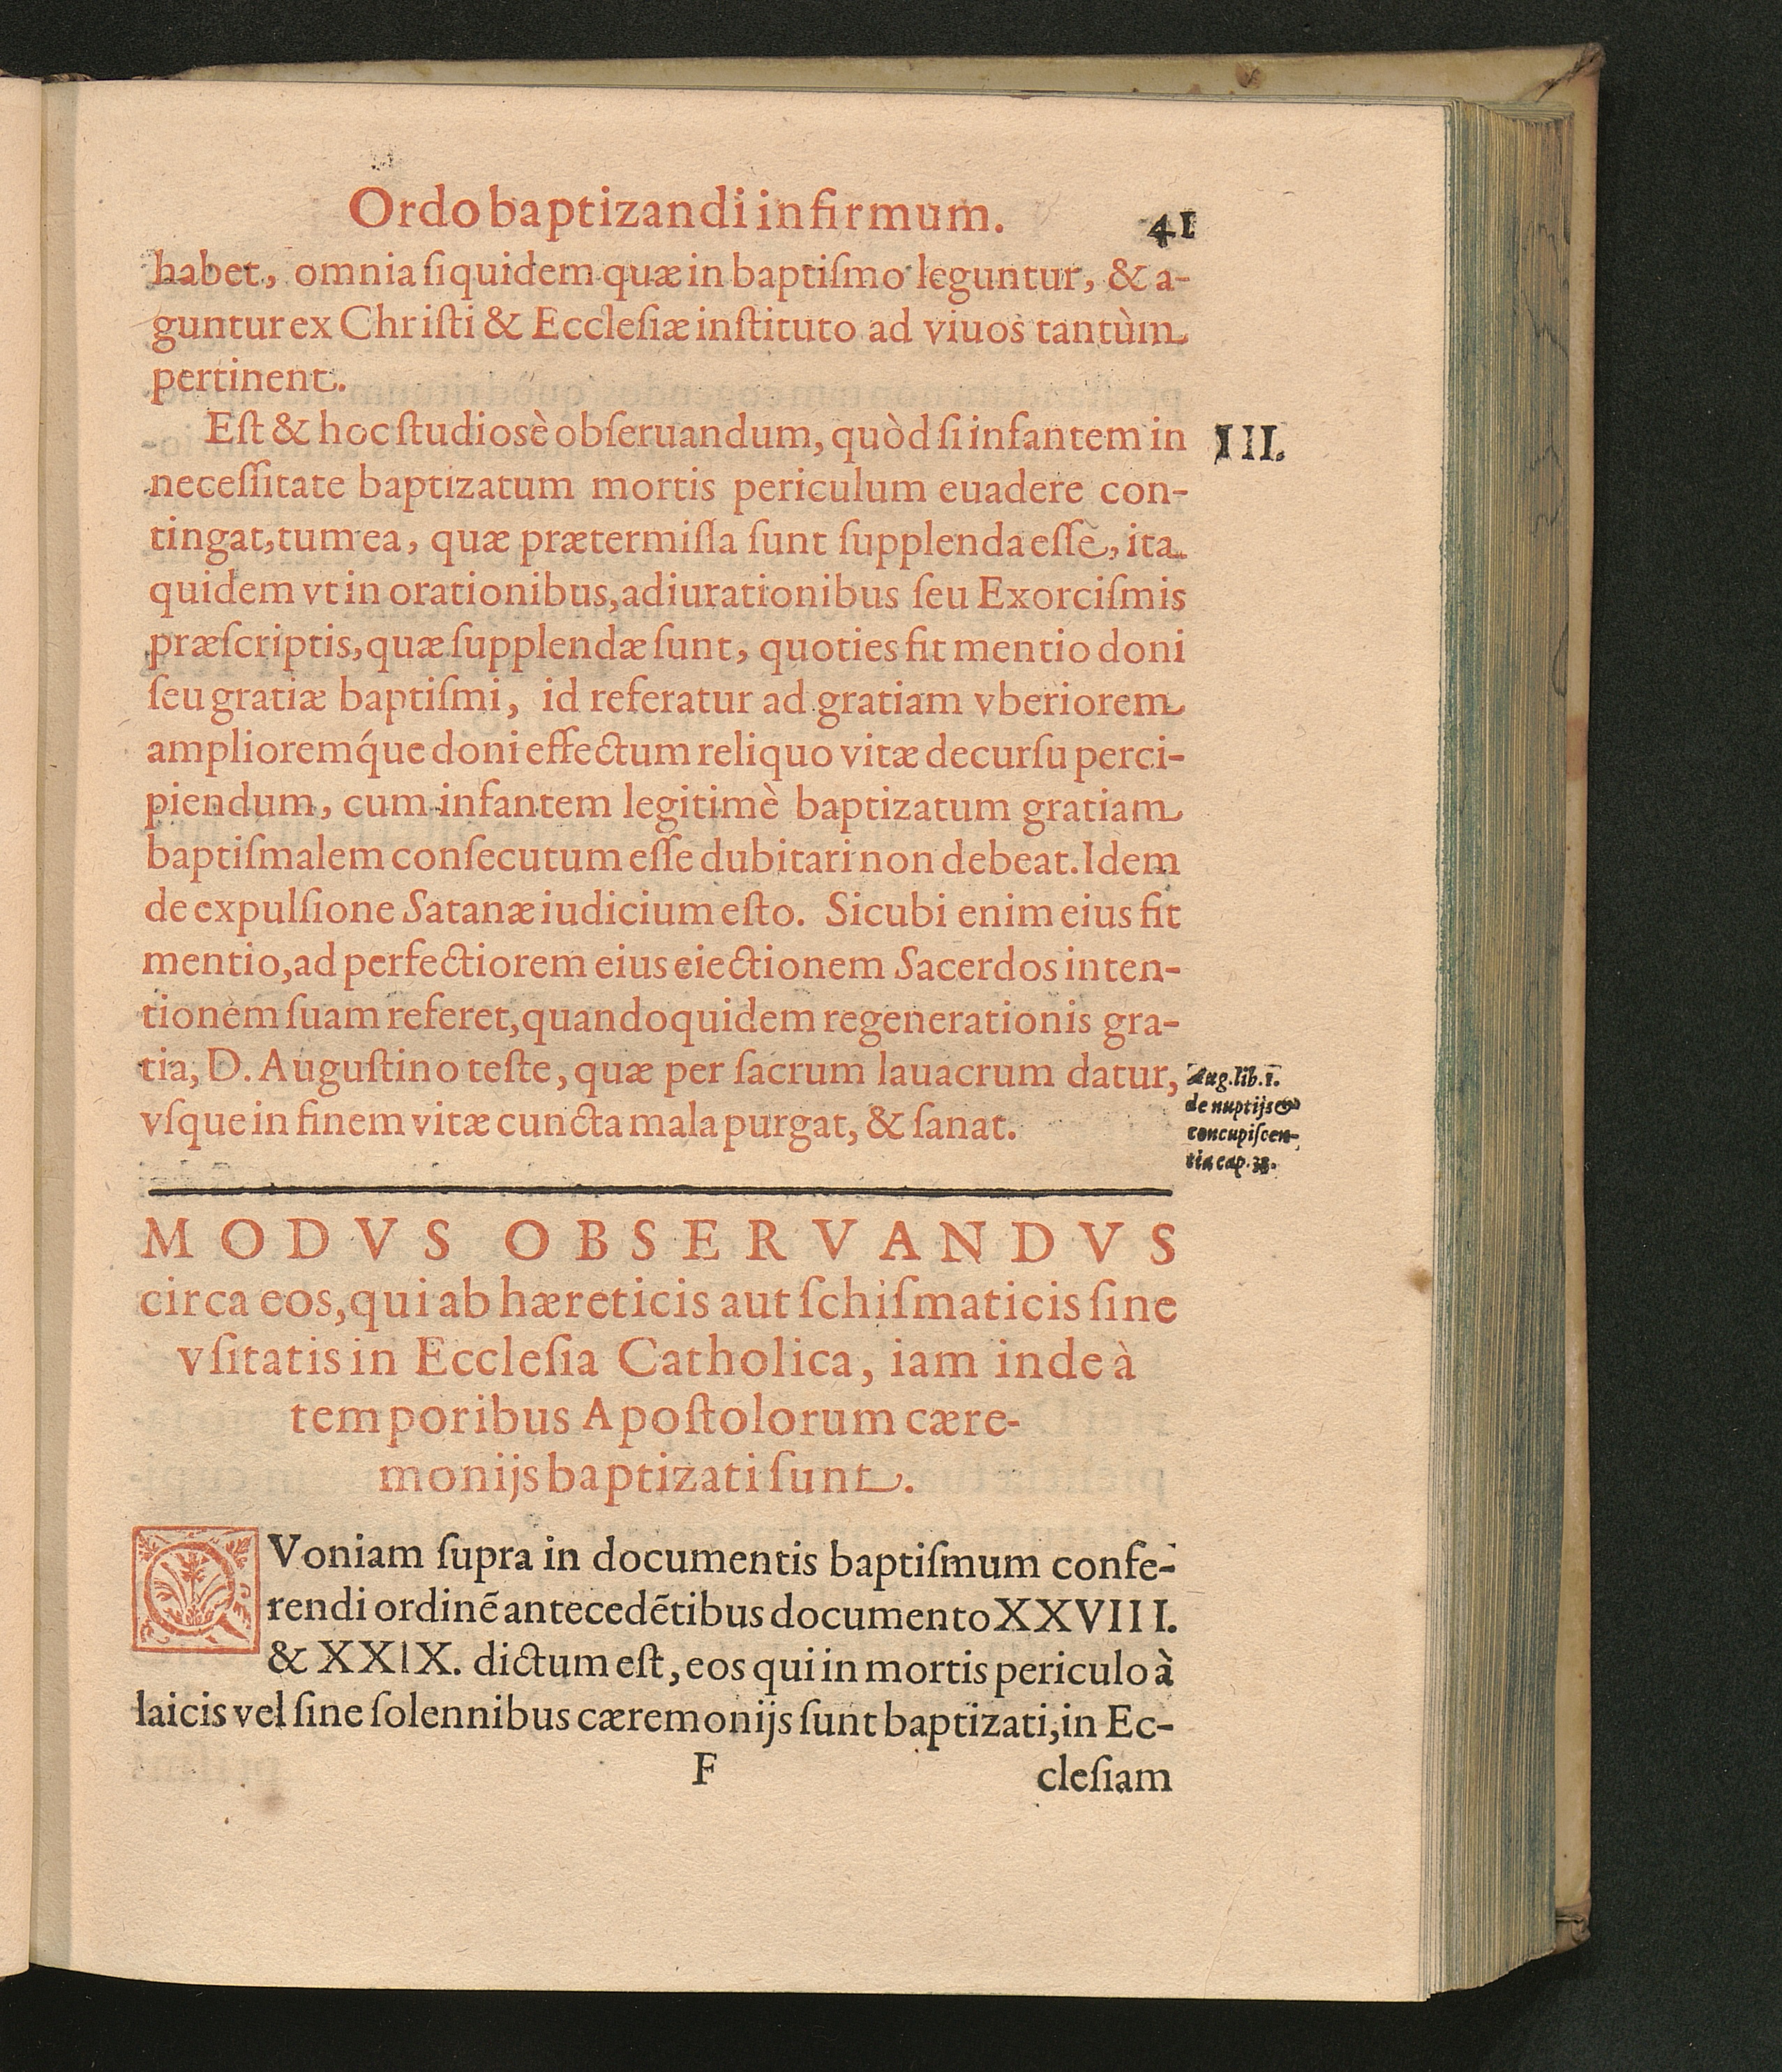 Ordo baptizandi infirmum. 41
habet, omnia ſiquidem quæ in baptiſmo leguntur, & a-
guntur ex Chriſti & Eccleſiæ inſtituto ad viuos tantùm
pertinent.
Eſt & hoc ſtudiosè obſeruandum, quòd ſi infantem in
III.
neceſſitate baptizatum mortis periculum euadere con-
tingat, tum ea, quæ prætermiſſa ſunt ſupplenda eſſè, ita
quidem vt in orationibus, adiurationibus ſeu Exorciſmis
præſcriptis, quæ ſupplendæ ſunt, quoties fit mentio doni
ſeu gratiæ baptiſmi, id referatur ad gratiam vberiorem
amplioremq́ue doni effectum reliquo vitæ decurſu perci-
piendum, cum infantem legitimè baptizatum gratiam
baptiſmalem conſecutum eſſe dubitari non debeat. Idem
de expulſione Satanæ iudicium eſto. Sicubi enim eius fit
mentio, ad perfectiorem eius eiectionem Sacerdos inten-
tionem ſuam referet, quandoquidem regenerationis gra-
tia, D. Auguſtino teſte, quæ per ſacrum lauacrum datur,
vſque in finem vitæ cuncta mala purgat, & ſanat.
Aug. lib. 1.
de nuptijs &
concupiſcen-
tia cap. 38.
MODVS OBSERVANDVS
circa eos, qui ab hæreticis aut ſchiſmaticis ſine
vſitatis in Eccleſia Catholica, iam inde à
temporibus Apoſtolorum cære-
monijs baptizati ſunt.
QVoniam ſupra in documentis baptiſmum confe-
rendi ordinẽ antecedẽtibus documento XXVIII.
& XXIX. dictum eſt, eos qui in mortis periculo à
laicis vel ſine ſolennibus cæremonijs ſunt baptizati, in Ec-
F cleſiam